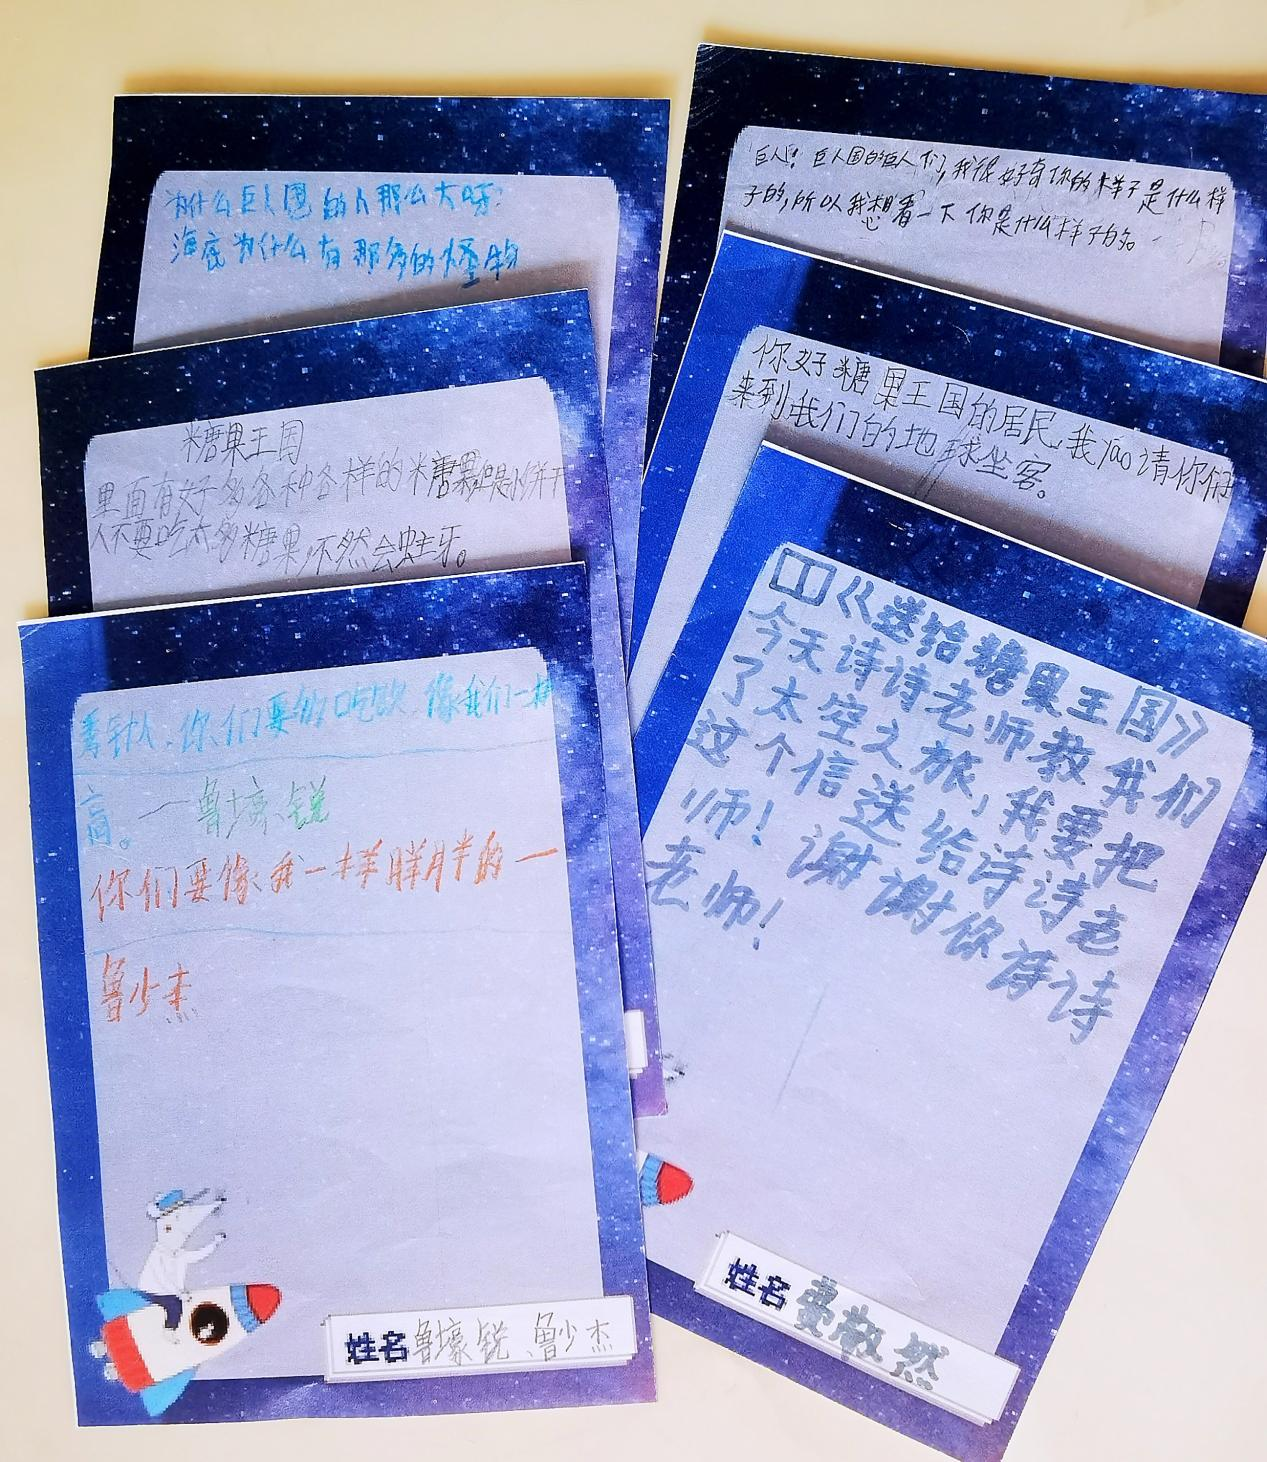 为什么巨人国的人那么大呀?
海底为什么有那多的怪物
糖果王国
里面有好多各种各样的糖果但是小朋
人不要吃太多糖果,不然会蛀牙。
你们要多吃饭,像我们一样
高。一鲁壕锐
你们要像我一样胖胖的一
鲁少杰
姓名鲁壕锐、鲁少杰
巨人!巨人国的巨人们,我很好奇你的样子是什么样
子的,所以我想看一下你是什么样子的
你好糖果王国的居民,我yao请你们
来到我们的地球坐客。
《送给糖果王国》
今天诗诗老师教我们
了太空之旅,我要把
这个信送给诗诗老
师!谢谢你诗诗
老师!
姓名费敬然